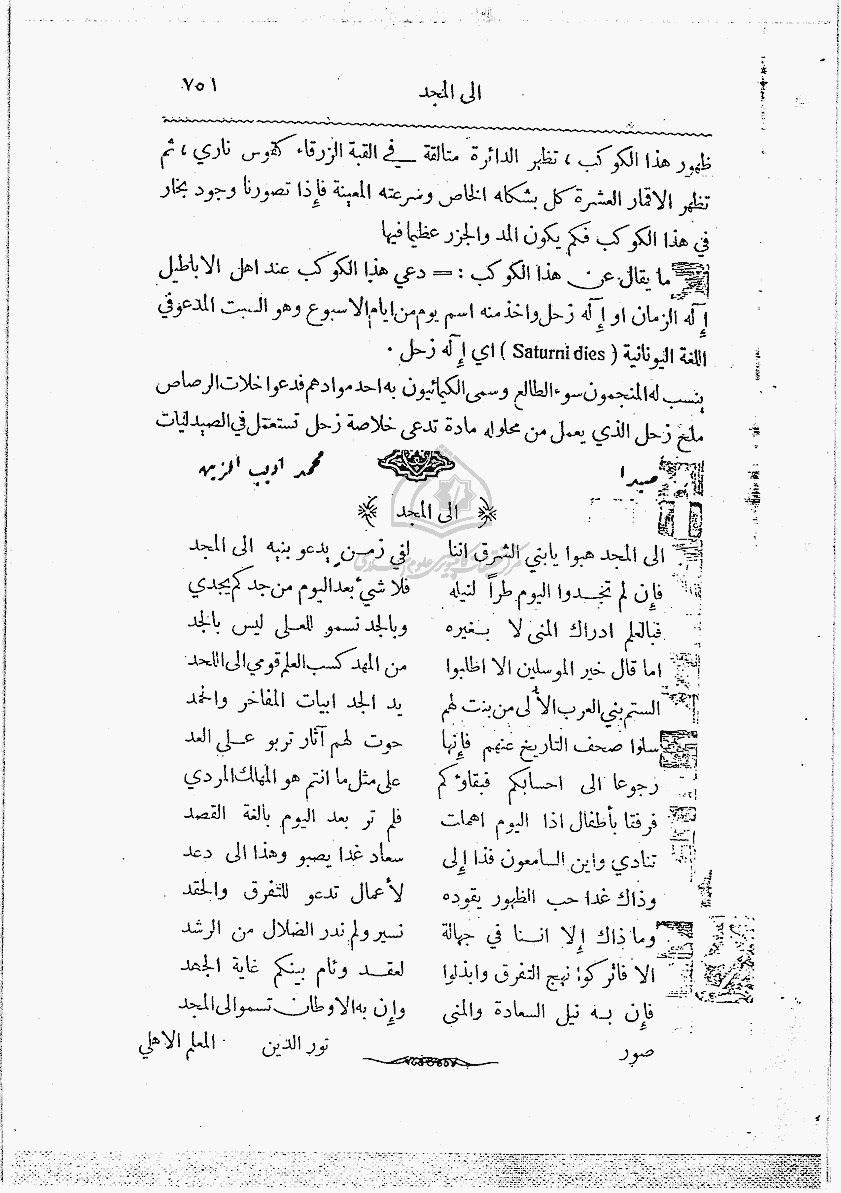 الى المجد
٧٥١
ظهور هذا الكوكب ، تظهر الدائرة متالقة في القبة الزرقاء كقوس ناري ، ثم
تظهر الاقمار العشرة كل بشكله الخاص وسرعته المعينة فإذا تصورنا وجود بخار
في هذا الكوكب فكم يكون المد والجزر عظيما فيها
ما يقال عن هذا الكوكب : = دعي هذا الكوكب عند اهل الاباطيل
إله الزمان او إله زحل واخذ منه اسم يوم من ايام الاسبوع وهو السبت المدعو في
اللغة اليونانية ( Saturni dies ) اي إله زحل .
ينسب له المنجمون سوء الطالع وسمى الكيمائيون به احد موادهم فدعوا خلات الرصاص
ملح زحل الذي يعمل من محلوله مادة تدعى خلاصة زحل تستعمل في الصيدليات
صيدا محمد اديب الزين
الى المجد
الى المجد هبوا يابني الشرق اننا لفي زمن يدعو بنيه الى المجد
فإن لم تجدوا اليوم طراً لنيله فلا شيء بعد اليوم من جدكم يجدي
فبالعلم ادراك المنى لا بغيره وبالجد نسمو للعلى ليس بالجد
اما قال خير المرسلين الا اطلبوا من المهد كسب العلم قومي الى اللحد
الستم بني العرب الألى من بنت لهم يد الجد ابيات المفاخر والحمد
سلوا صحف التاريخ عنهم فإنها حوت لهم آثار تربو على العد
رجوعا الى احسابكم فبقاؤكم على مثل ما انتم هو المهالك المردي
فرفقا بأطفال اذا اليوم اهملت فلم تر بعد اليوم بالغة القصد
تنادي واين السامعون فذا إلى سعاد غدا يصبو وهذا الى دعد
وذاك غدا حب الظهور يقوده لأعمال تدعو للتفرق والحقد
وما ذاك إلا اننا في جهالة نسير ولم ندر الضلال من الرشد
الا فاتركوا نهج التفرق وابذلوا لعقد وئام بينكم غاية الجهد
فإن به نيل السعادة والمنى وإن به الاوطان تسمو الى المجد
صور نور الدين المعلم الاهلي